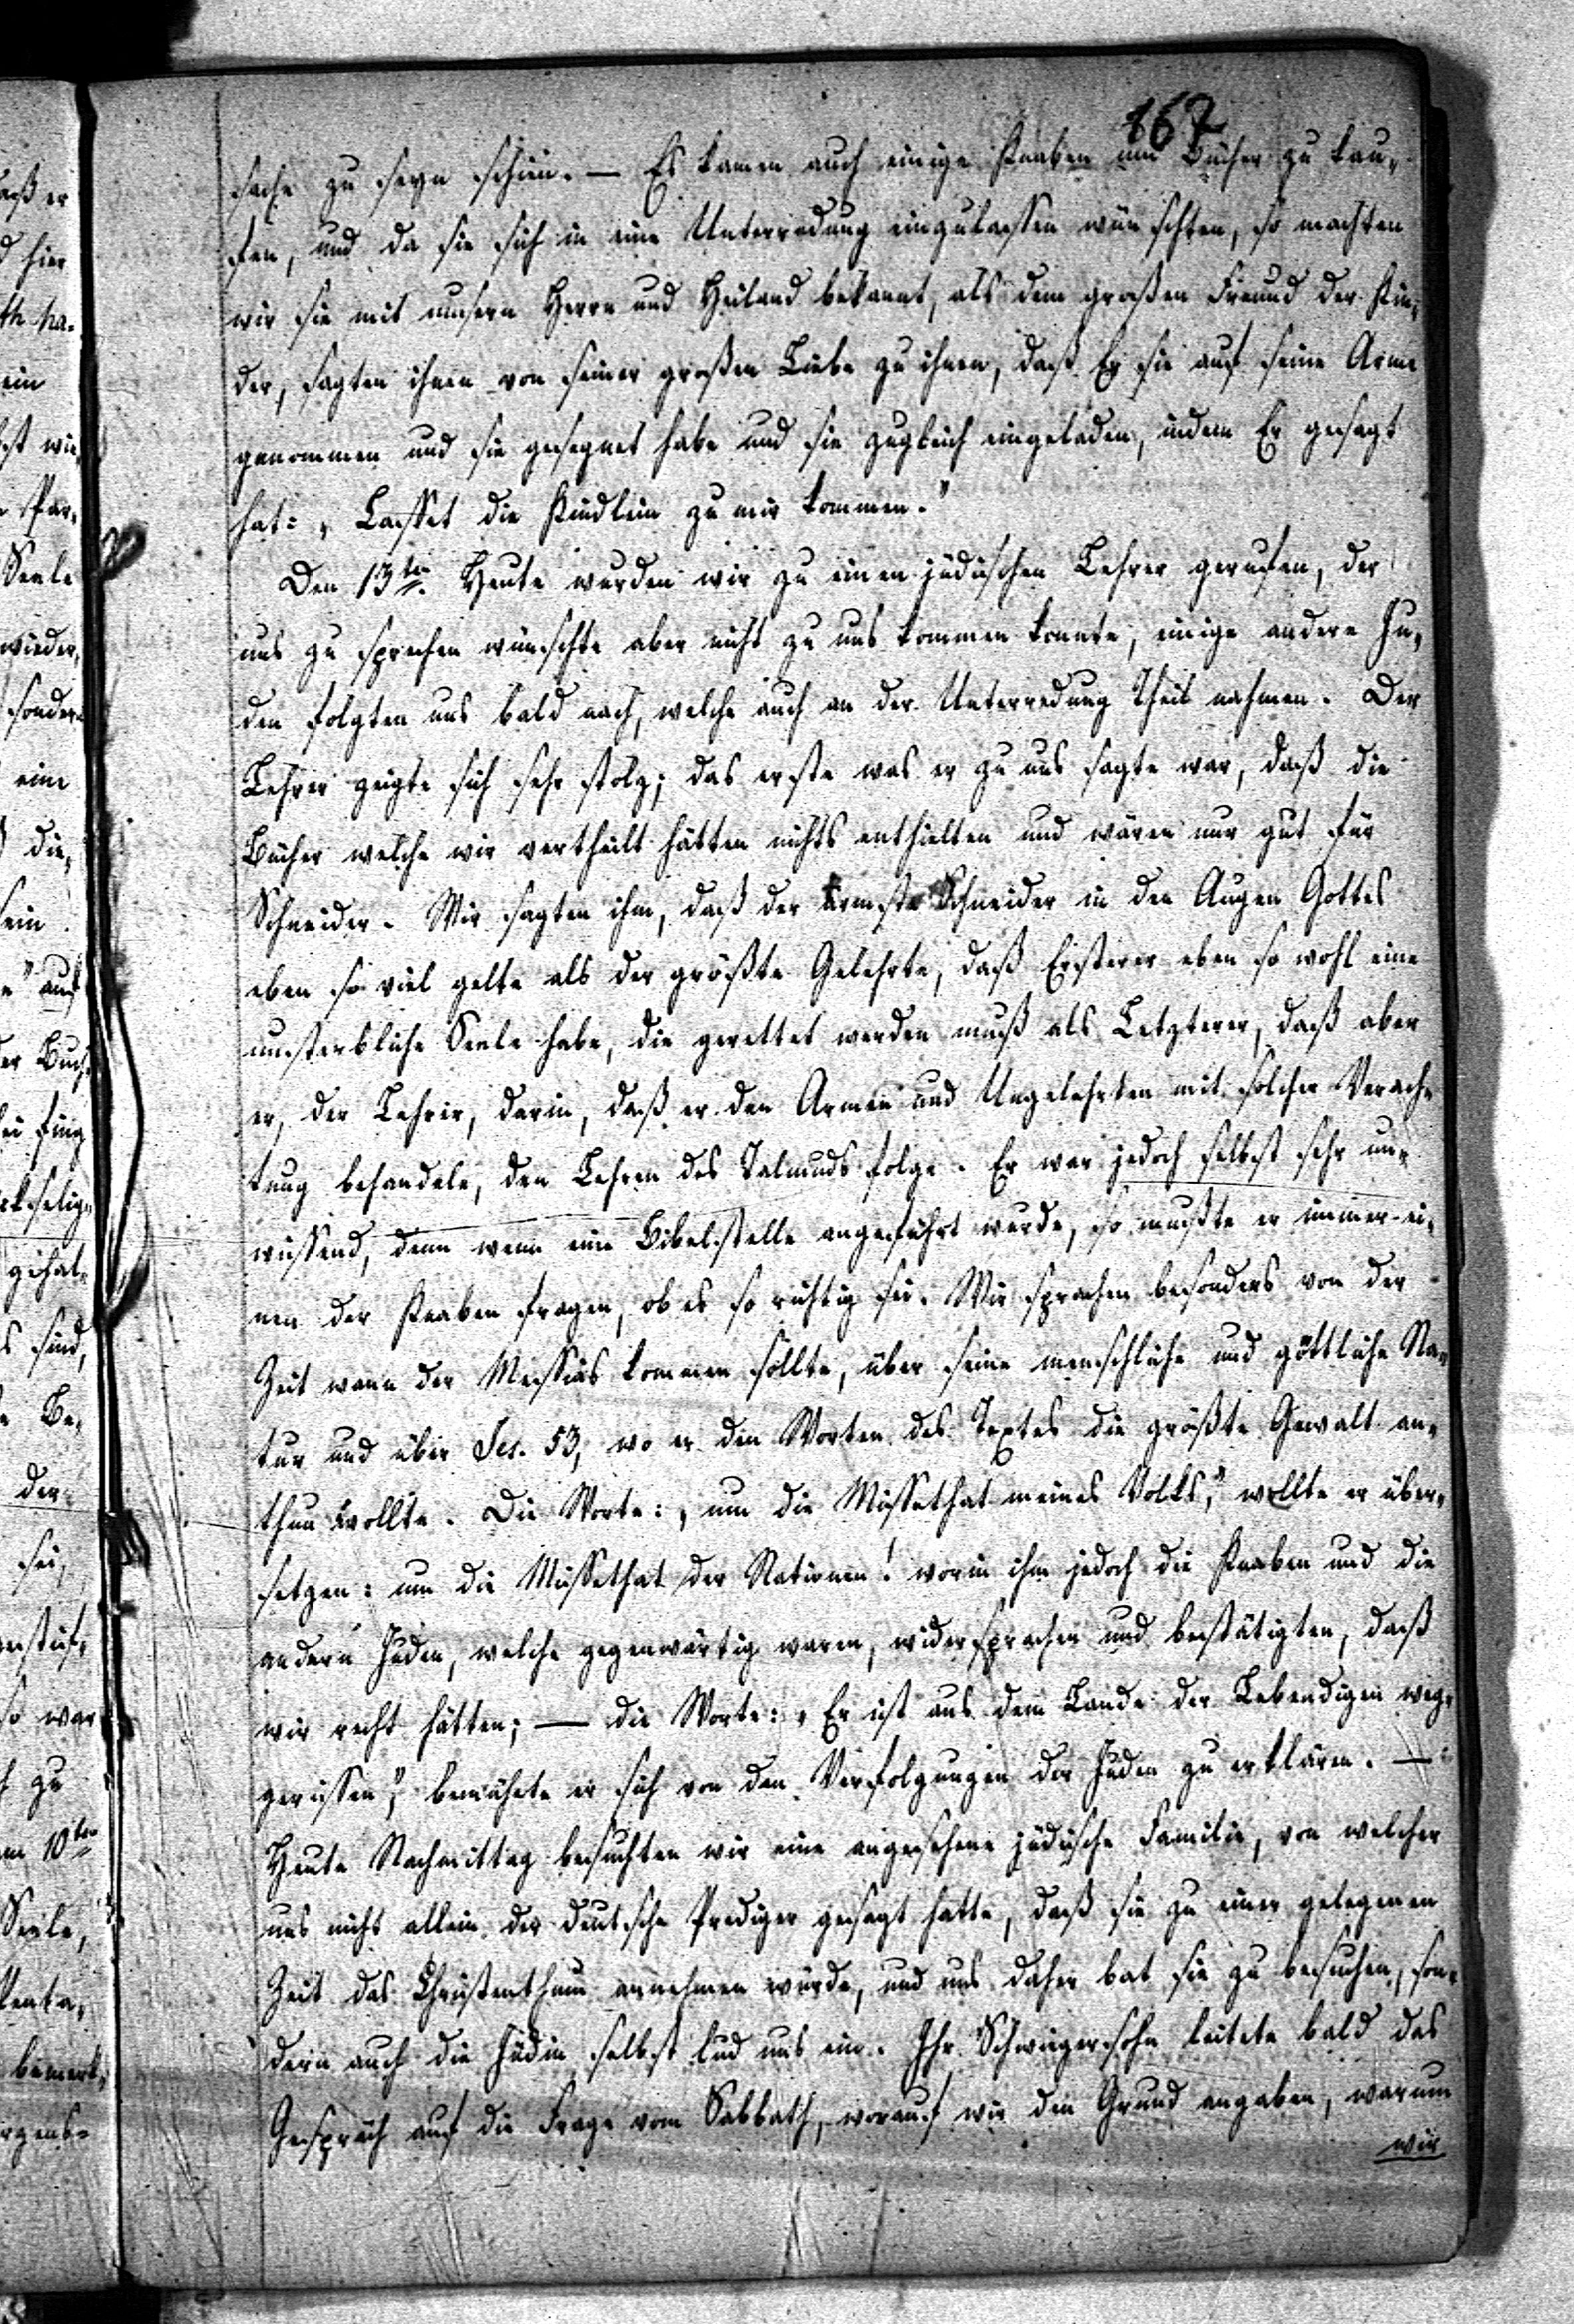 167
sache zu seyn schien. — Es kamen auch einige Knaben um Bücher zu kau-
fen, und da sie sich in eine Unterredung einzulassen wünschten, so machten
wir sie mit unserm Herrn und Heiland bekannt, als dem großen Freund der Kin-
der, sagten ihnen von seiner großen Liebe zu ihnen, daß Er sie auf seine Arme
genommen und sie gesegnet habe und sie zugleich eingeladen, indem Er gesagt
hat: „Lasset die Kindlein zu mir kommen.“
Den 13ten. Heute wurden wir zu einem jüdischen Lehrer gerufen, der
uns zu sprechen wünschte aber nicht zu uns kommen konnte; einige andere Ju-
den folgten uns bald nach, welche auch an der Unterredung Theil nahmen. Der
Lehrer zeigte sich sehr stolz; das erste was er zu uns sagte war, daß die
Bücher welche wir vertheilt hätten nichts enthielten und wären nur gut für
Schneider. Wir sagten ihm, daß der ärmste Schneider in den Augen Gottes
eben so viel gelte als der größte Gelehrte, daß Ersterer eben so wohl eine
unsterbliche Seele habe, die gerettet werden muß als Letzterer, daß aber
er, der Lehrer, darin, daß er den Armen und Ungelehrten mit solcher Verach-
tung behandele, den Lehren des Talmuds folge. Er war jedoch selbst sehr un-
wissend, denn wenn eine Bibelstelle angeführt wurde, so mußte er immer ei-
nen der Knaben fragen, ob es so richtig sei. Wir sprachen besonders von der
Zeit wann der Messias kommen sollte, über seine menschliche und göttliche Na-
tur und über Jes. 53, wo er den Worten des Textes die größte Gewalt an-
thun wollte. Die Worte: „um die Missethat meines Volks,“ wollte er über-
setzen: um die Missethat der Nationen! worin ihm jedoch die Knaben und die
andern Juden, welche gegenwärtig waren, widersprachen und bestätigten, daß
wir recht hätten; — die Worte: „Er ist aus dem Lande der Lebendigen weg-
gerissen,“ bemühete er sich von den Verfolgungen der Juden zu erklären. —
Heute Nachmittag besuchten wir eine angesehene jüdische Familie, von welcher
uns nicht allein der deutsche Prediger gesagt hatte, daß sie zu einer gelegenen
Zeit das Christenthum annehmen würde, und uns daher bat sie zu besuchen, son-
dern auch die Jüdin selbst lud uns ein. Ihr Schwiegersohn leitete bald das
Gespräch auf die Frage vom Sabbath, worauf wir den Grund angaben, warum
wir